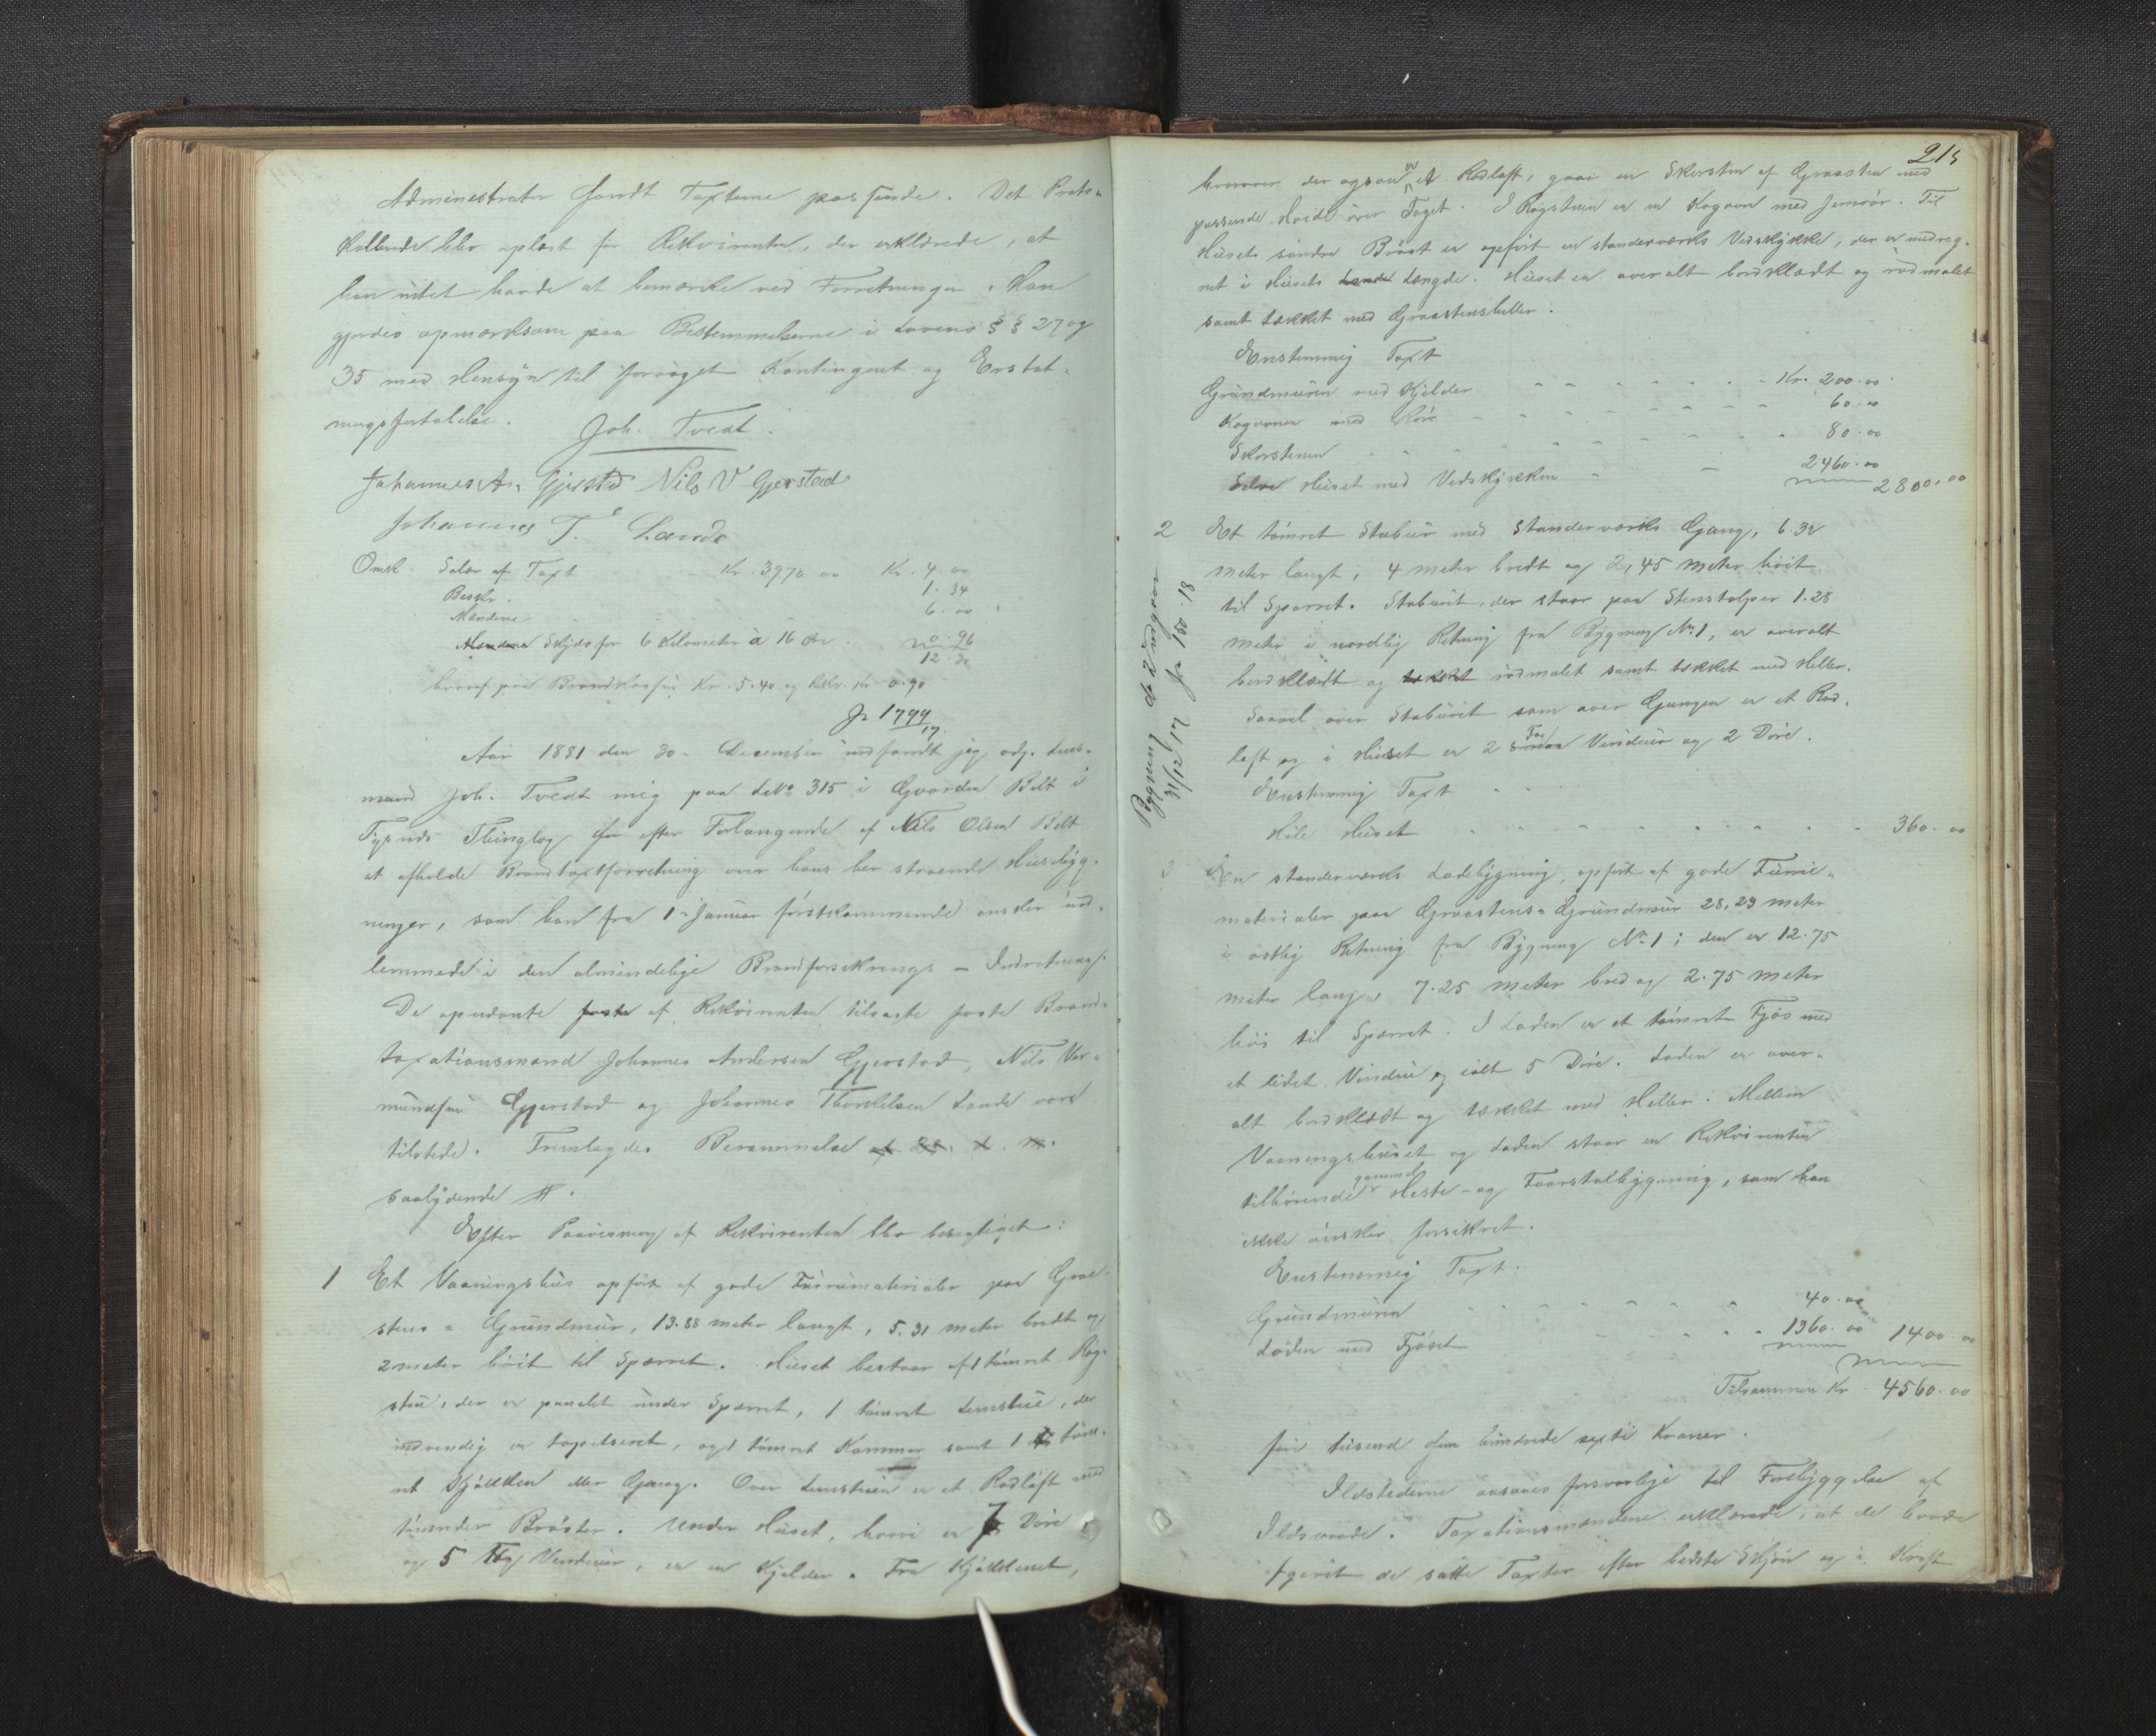 Adminestrator fandt Taxterne passende. Det Proto-
kollerede blev oplæst for Rekvirenten, der erklærede, at
han intet havde at bemærke ved Forretningen. Han
gjordes opmærksom paa Bestemmelserne i Lovens §§ 27 og
35 med Hensyn til forøget Kontingent og Erstat-
ningsfortabelse.
Joh. Tvedt.
Johannes A. Gjersted Nils V Gjerstad
Johannes T. Lande
Omk. Salær af Taxt Kr. 3970 00 Kr. 4.00
Beskr. 1.34
Mændene 6.00
Mændene Skyds for 6 Kilometer à 16 Øre 0.96
12.30
hvoraf paa Brandkassen Kr. 5.40 og Rekv. Kr. 0.90
Jr 1799/17.
Aar 1881 den 30. December indfandt jeg, adj. Lens-
mand Joh. Tvedt mig paa LNo 315 i Gaarden Belt i
Thinglag for efter Forlangende af Nils Olsen Belt
at afholde Brandtaxtforretning over hans her staaende Husebyg-
ninger, som han fra 1. Januar førstkommende ønsker ind-
lemmede i den almindelige Brandforsikrings-Indretning.
De opnævnte faste af Rekvirenten tilsagte faste Brand-
taxationsmænd Johannes Andersen Gjerstad, Nils Vær-
mundsen Gjerstad og Johannes Thorkelsen Lande vare
tilstede. Fremlagdes Berammelse af 28. d. m.
saalydende #.
Efter Paavisning af Rekvirenten blev besigtiget:
1 Et Vaaningshus opført af gode Furumaterialer paa Graa-
stens-Grundmur, 13.88 meter langt, 5.31 meter bredt og
2 meter höit til Sparret. Huset bestaar af 1 tömret Røg-
stue, der er panelet under Sparret, 1 tömret Lemstue, der
indvendig er tapetseret, og 1 tömret Kammer samt 1 töm-
ret Kjökken eller Gang. Over Lemstuen er et Rodloft med
tömrede Bröster. Under Huset, hvori er 7 Döre
og 5 Fag Vinduer, er en Kjelder. Fra Kjökkenet,
215
hvorover der ogsaa er et Rodloft, gaar en Skorsten af Graasten med
passende Höide over Taget. I Røgstuen er en Kogovn med Jernrör. Til
Husets söndre Bröst er opført et standerværks Vedskykke, der er medreg-
net i Husets Lænde Længde. Huset er overalt bordklædt og rödmalet
samt tækket med Graastensheller.
Enstemmig Taxt
Grundmuren med Kjelder Kr. 200.00
Kogovnen med Rör 60.00
Skorstenen 80.00
Selve Huset med Vedskykken 2460.00 2800.00
2 Et tömret Stabur med Standerværks Gang, 6.32
meter langt, 4 meter bredt og 2,45 meter höit
til Sparret. Staburet, der staar paa Stenstolper 1.28
meter i nordlig Retning fra Bygning No 1, er overalt
bordklædt og tækket rödmalet samt tækket med Heller.
Saavel over Staburet som over Gangen er et Rod-
loft og i Huset er 2 smaa Fag Vinduer og 2 Döre.
Enstemmig Taxt
Hele Huset 360.00
Bygning No 2 udgaar
31/12 17 Jr 150.18
3 En standerværks Ladebygning, opfört af gode Furu-
materialer paa Graastens-Grundmur 28,29 meter
i östlig Retning fra Bygning No 1; den er 12.75
meter lang, 7.25 meter bred og 2.75 meter
höi til Sparret. I Laden er et tömret Fjös med
et lidet Vindue og ialt 5 Döre. Laden er over-
alt bordklædt og tækket med Heller. Mellem
Vaaningshuset og Laden staar en Rekvirenten
tilhörende gammel Heste- og Faarstalbygning, som han
ikke önsker forsikret.
Enstemmig Taxt:
Grundmuren 40.00
Laden med Fjöset 1360.00 1400.00
Tilsammen Kr. 4560.00
fire tusend fem hundrede sexti Kroner.
Ildstederne ansaaes forsvarlige til Forebyggelse af
Ildsvaade. Taxationsmændene erklærede, at de havde
afgivet de satte Taxter efter bedste Skjön og i Kraft